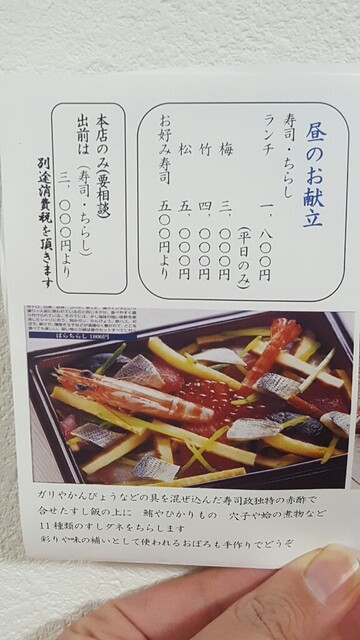 昼のお献立
寿司・ちらし
ランチ 一、八〇〇円
(平日のみ)
梅 三、〇〇〇円
竹 四、〇〇〇円
松 五、〇〇〇円
お好み寿司 五〇〇円より
本店のみ(要相談)
出前は(寿司・ちらし)
三、〇〇〇円より
別途消費税を頂きます
ばらちらし 1,800円
ガリやかんぴょうなどの具を混ぜ込んだ寿司政独特の赤酢で
合せたすし飯の上に 鮪やひかりもの 穴子や蛤の煮物など
11種類のすしダネをちらします
彩りや味の補いとして使われるおぼろも手作りでどうぞ